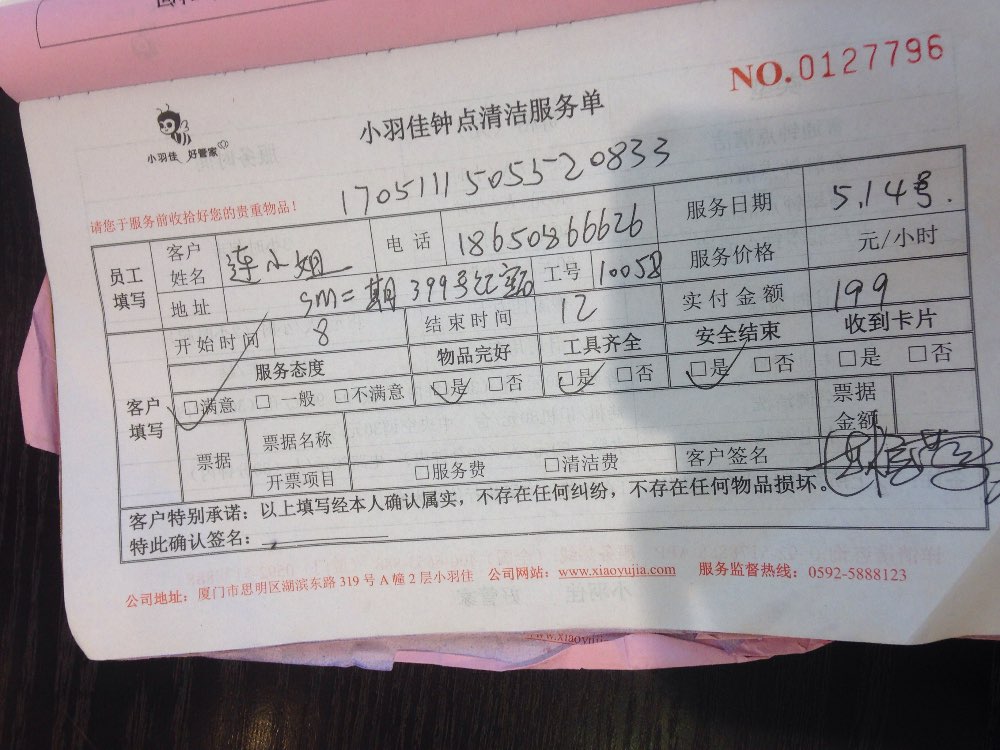 NO.0127796
小羽佳 好管家
小羽佳钟点清洁服务单
请您于服务前收拾好您的贵重物品！
17051115055520833
员工填写 客户姓名 连小姐 电话 18650866626 服务日期 5.14号.
地址 SM二期399号 工号 10058 服务价格 元/小时
开始时间 8 结束时间 12 实付金额 199
客户填写 服务态度 物品完好 工具齐全 安全结束 收到卡片
□满意 □一般 □不满意 □是 □否 □是 □否 □是 □否 □是 □否
票据 票据名称 票据金额
开票项目 □服务费 □清洁费 客户签名
客户特别承诺：以上填写经本人确认属实，不存在任何纠纷，不存在任何物品损坏。
特此确认签名：
公司地址：厦门市思明区湖滨东路319号A幢2层小羽佳 公司网站：www.xiaoyujia.com 服务监督热线：0592-5888123